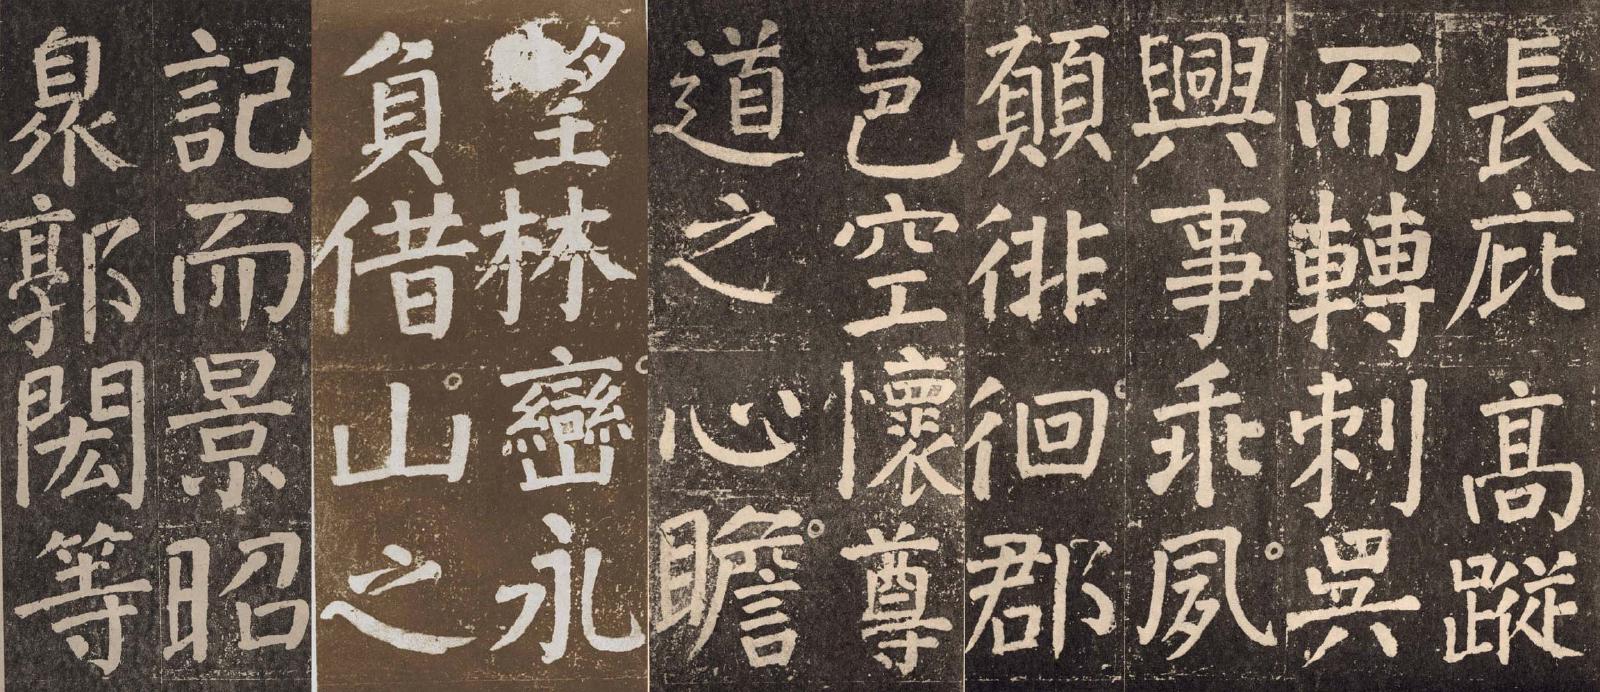 長庇高蹤
而轉刺吳
興事乖夙
願徘徊郡
邑空懷尊
道之心瞻
望林巒永
負借山之
記而景昭
臮郭閎等